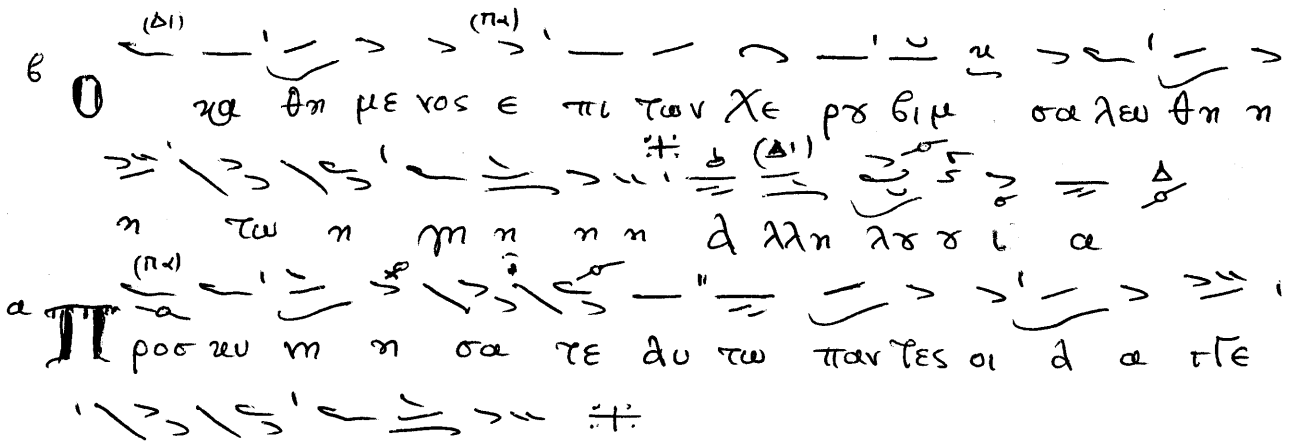 (Δι) (Πα)
β Ο κα θη με νος ε πι των χε ρου βιμ σα λευ θη η
(Δι)
η τω η γη η η η α λλη λου ου ι α
(Πα)
α Π ροσ κυ νη η σα τε αυ τω παν τες οι α α γγε